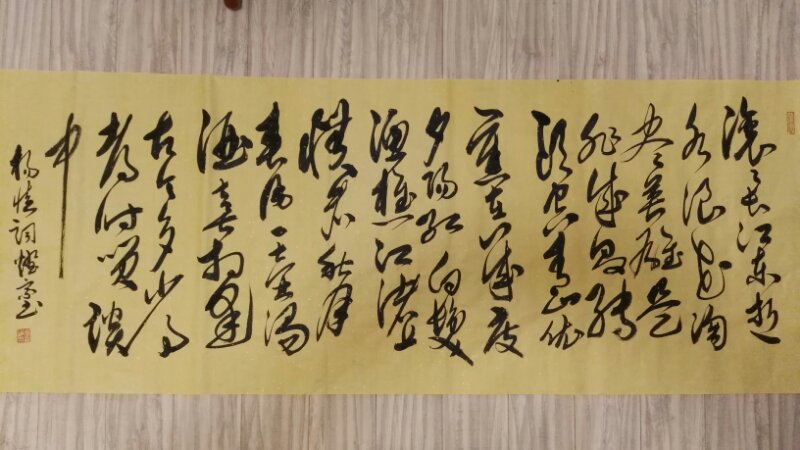 滚滚长江东逝
水浪花淘
尽英雄是
非成败转
头空青山依
舊在几度
夕阳红白髮
渔樵江渚上
惯看秋月
春风一壶浊
酒喜相逢
古今多少事
都付笑谈
中
杨慎词